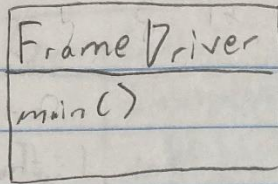 Frame Driver
main()